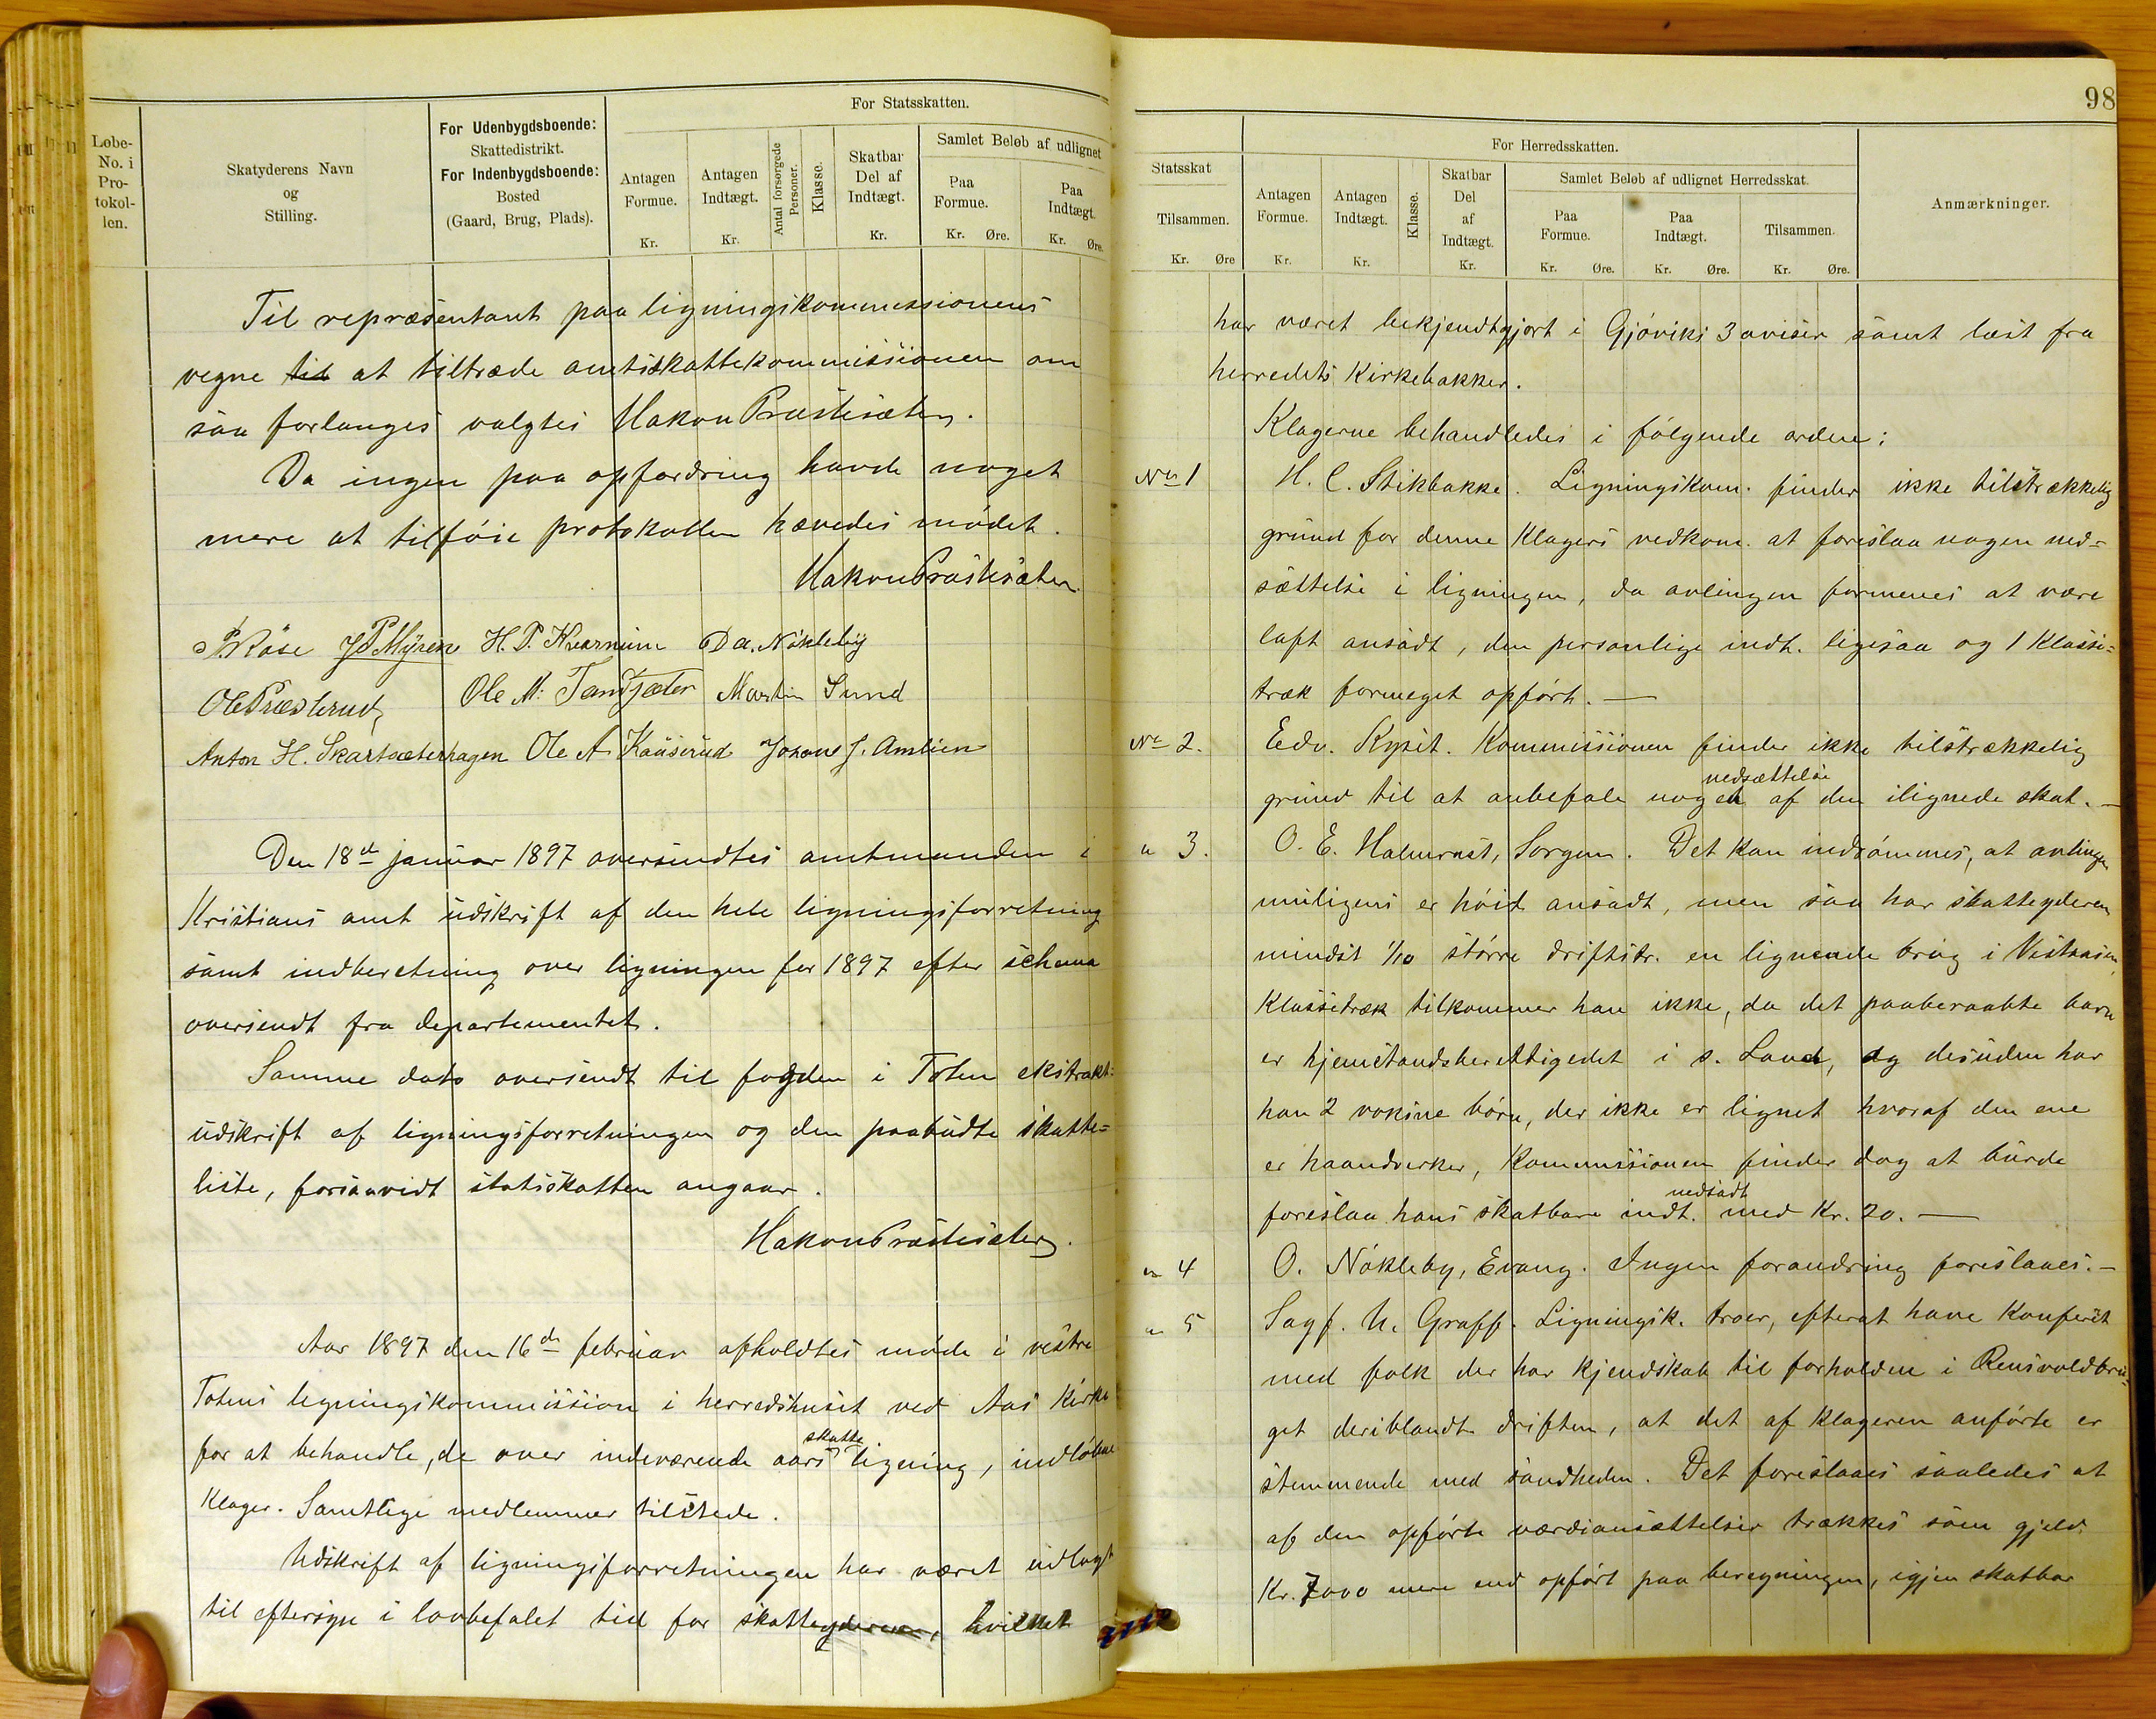 Løbe-
No. i
Pro-
tokol-
len.
Skatyderens Navn
og
Stilling.
For Udenbygdsboende:
Skattedistrikt.
For Indenbygdsboende:
Bosted
(Gaard, Brug, Plads).
For Statsskatten.
Antagen
Formue.
Kr.
Antagen
Indtægt.
Kr.
Antal forsørgede
Personer.
Klasse.
Skatbar
Del af
Indtægt.
Kr.
Samlet Beløb af udlignet
Paa
Formue.
Kr. Øre.
Paa
Indtægt.
Kr. Øre.
Til repræsentant paa ligningskommissionens
vegne til at tiltræde amtsskattekommissionen om
saa forlanges valgtes Hakon Præstesæter.
Da ingen paa opfordring havde noget
mere at tilføie protokollen hævedes mødet.
Hakon Præstesæter.
P. Røse J P Myren H. P. Kvarnum D. A. Nøkleby
Ole Præsterud, Ole M. Tandsæter Martin Sund
Anton H. Skartsæterhagen Ole A Kauserud Johans J. Amlien
Den 18de januar 1897 oversendtes amtmanden i
Kristians amt udskrift af den hele ligningsforretning
samt indberetning over ligningen for 1897 efter schema
oversendt fra departementet.
Samme dato oversendt til fogden i Toten ekstrakt-
udskrift af ligningsforretningen og den paabudte skatte-
liste, forsaavidt statsskatten angaar.
Hakon Præstesæter.
Aar 1897 den 16de februar afholdtes møde i vestre
Totens ligningskommission i herredshuset ved Aas kirke
for at behandle, de over indeværende aars skatte ligning, indløbne
klager. Samtlige medlemmer tilstede.
Udskrift af ligningsforretningen har været udlagt
til eftersyn i lovbefalet tid for skatteyderne, hvilket
98
Statsskat
Tilsammen.
Kr. Øre
For Herredsskatten.
Antagen
Formue.
Kr.
Antagen
Indtægt.
Kr.
Klasse.
Skatbar
Del
af
Indtægt.
Kr.
Samlet Beløb af udlignet Herredsskat.
Paa
Formue.
Kr. Øre.
Paa
Indtægt.
Kr. Øre.
Tilsammen.
Kr. Øre.
Anmærkninger.
har været bekjendtgjort i Gjøviks 3 aviser samt læst fra
herredets kirkebakker.
Klagerne behandledes i følgende orden:
No 1 H. C. Stikbakke. Ligningskom. finder ikke tilstrækkelig
grund for denne klagers vedkom. at foreslaa nogen ned-
sættelse i ligningen, da avlingen formenes at være
laft ansadt, den personlige indt. ligesaa og 1 klasse-
træk formeget opført. —
No 2. Edv. Kysit. Kommissionen finder ikke tilstrækkelig
grund til at anbefale nogen nedsættelse af den ilignede skat. —
" 3. O. E. Halmrast, Sorgen. Det kan indrømmes, at avlingen
muligens er høit ansadt, men saa har skatteyderen
mindst 1/10 større driftsbr. en lignende brug i Vestaasen,
klassetræk tilkommer han ikke, da det paaberaabte barn
er hjemstandsberettigedet i s. Land, og desuden har
han 2 voksne børn, der ikke er lignet hvoraf den ene
er haandverker, kommissionen finder dog at burde
foreslaa hans skatbare indt. nedsadt med Kr. 20. —
" 4 O. Nøkleby, Evang. Ingen forandring foreslaaes. —
" 5 Sagf. N. Graff. Ligningsk. troer, efterat have konferet
med folk der har kjendskab til forholdene i Reinsvoldbru-
get deriblandt driften, at det af klageren anførte er
stemmende med sandheden. Det foreslaaes saaledes at
af den opførte værdiansættelser trækkes som gjeld
Kr. 7000 mere end opført paa beregningen, igjen skatbar